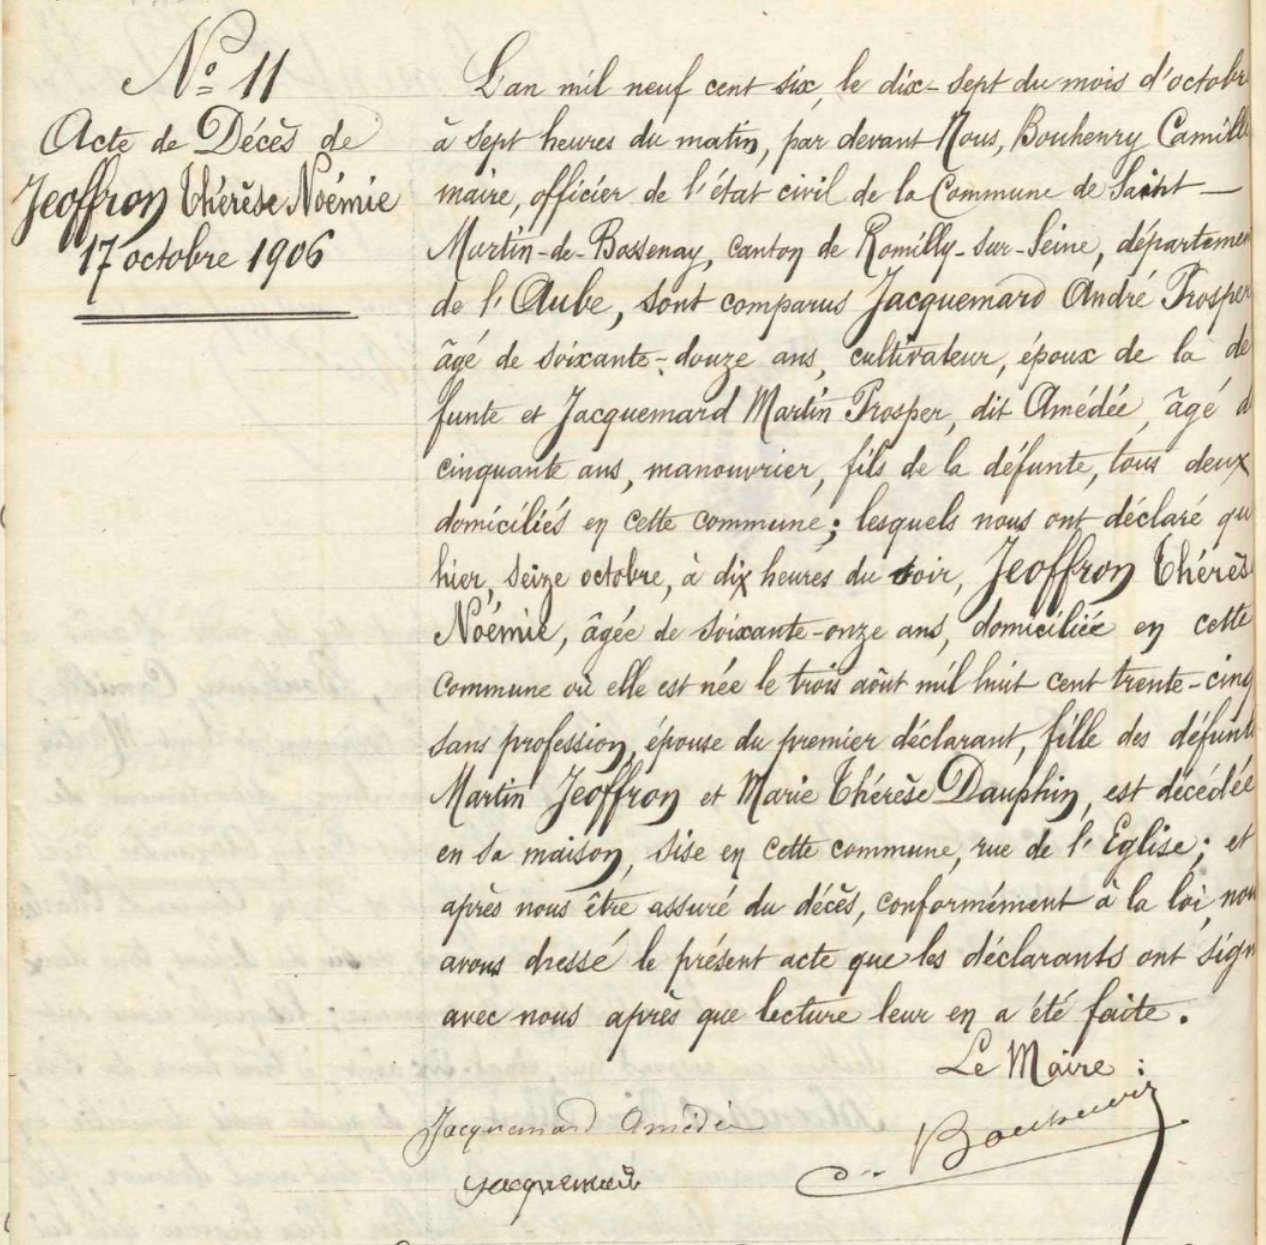 N° 11
Acte de Décès de
Jeoffron Thérèse Noémie
17 octobre 1906
L'an mil neuf cent six, le dix-sept du mois d'octobr
à sept heures du matin, par devant Nous, Bouhenry Camille
maire, officier de l'état civil de la Commune de Saint-
Martin-de-Bossenay, canton de Romilly-sur-Seine, départemen
de l'Aube, sont comparus Jacquemard André Prosper
âgé de soixante-douze ans, cultivateur, époux de la dé
funte et Jacquemard Martin Prosper, dit Amédée, âgé d
cinquante ans, manouvrier, fils de la défunte, tous deux
domiciliés en cette commune; lesquels nous ont déclaré qu
hier, seize octobre, à dix heures du soir, Jeoffron Thérès
Noémie, âgée de soixante-onze ans, domiciliée en cette
commune où elle est née le trois août mil huit cent trente-cinq
sans profession, épouse du premier déclarant, fille des défunts
Martin Jeoffron et Marie Thérèse Dauphin, est décédée
en sa maison, sise en cette commune, rue de l'Eglise; et
après nous être assuré du décès, conformément à la loi, nou
avons dressé le présent acte que les déclarants ont sign
avec nous après que lecture leur en a été faite.
Le Maire:
Jacquemard Amédée
Bouhenry
Jacquemard